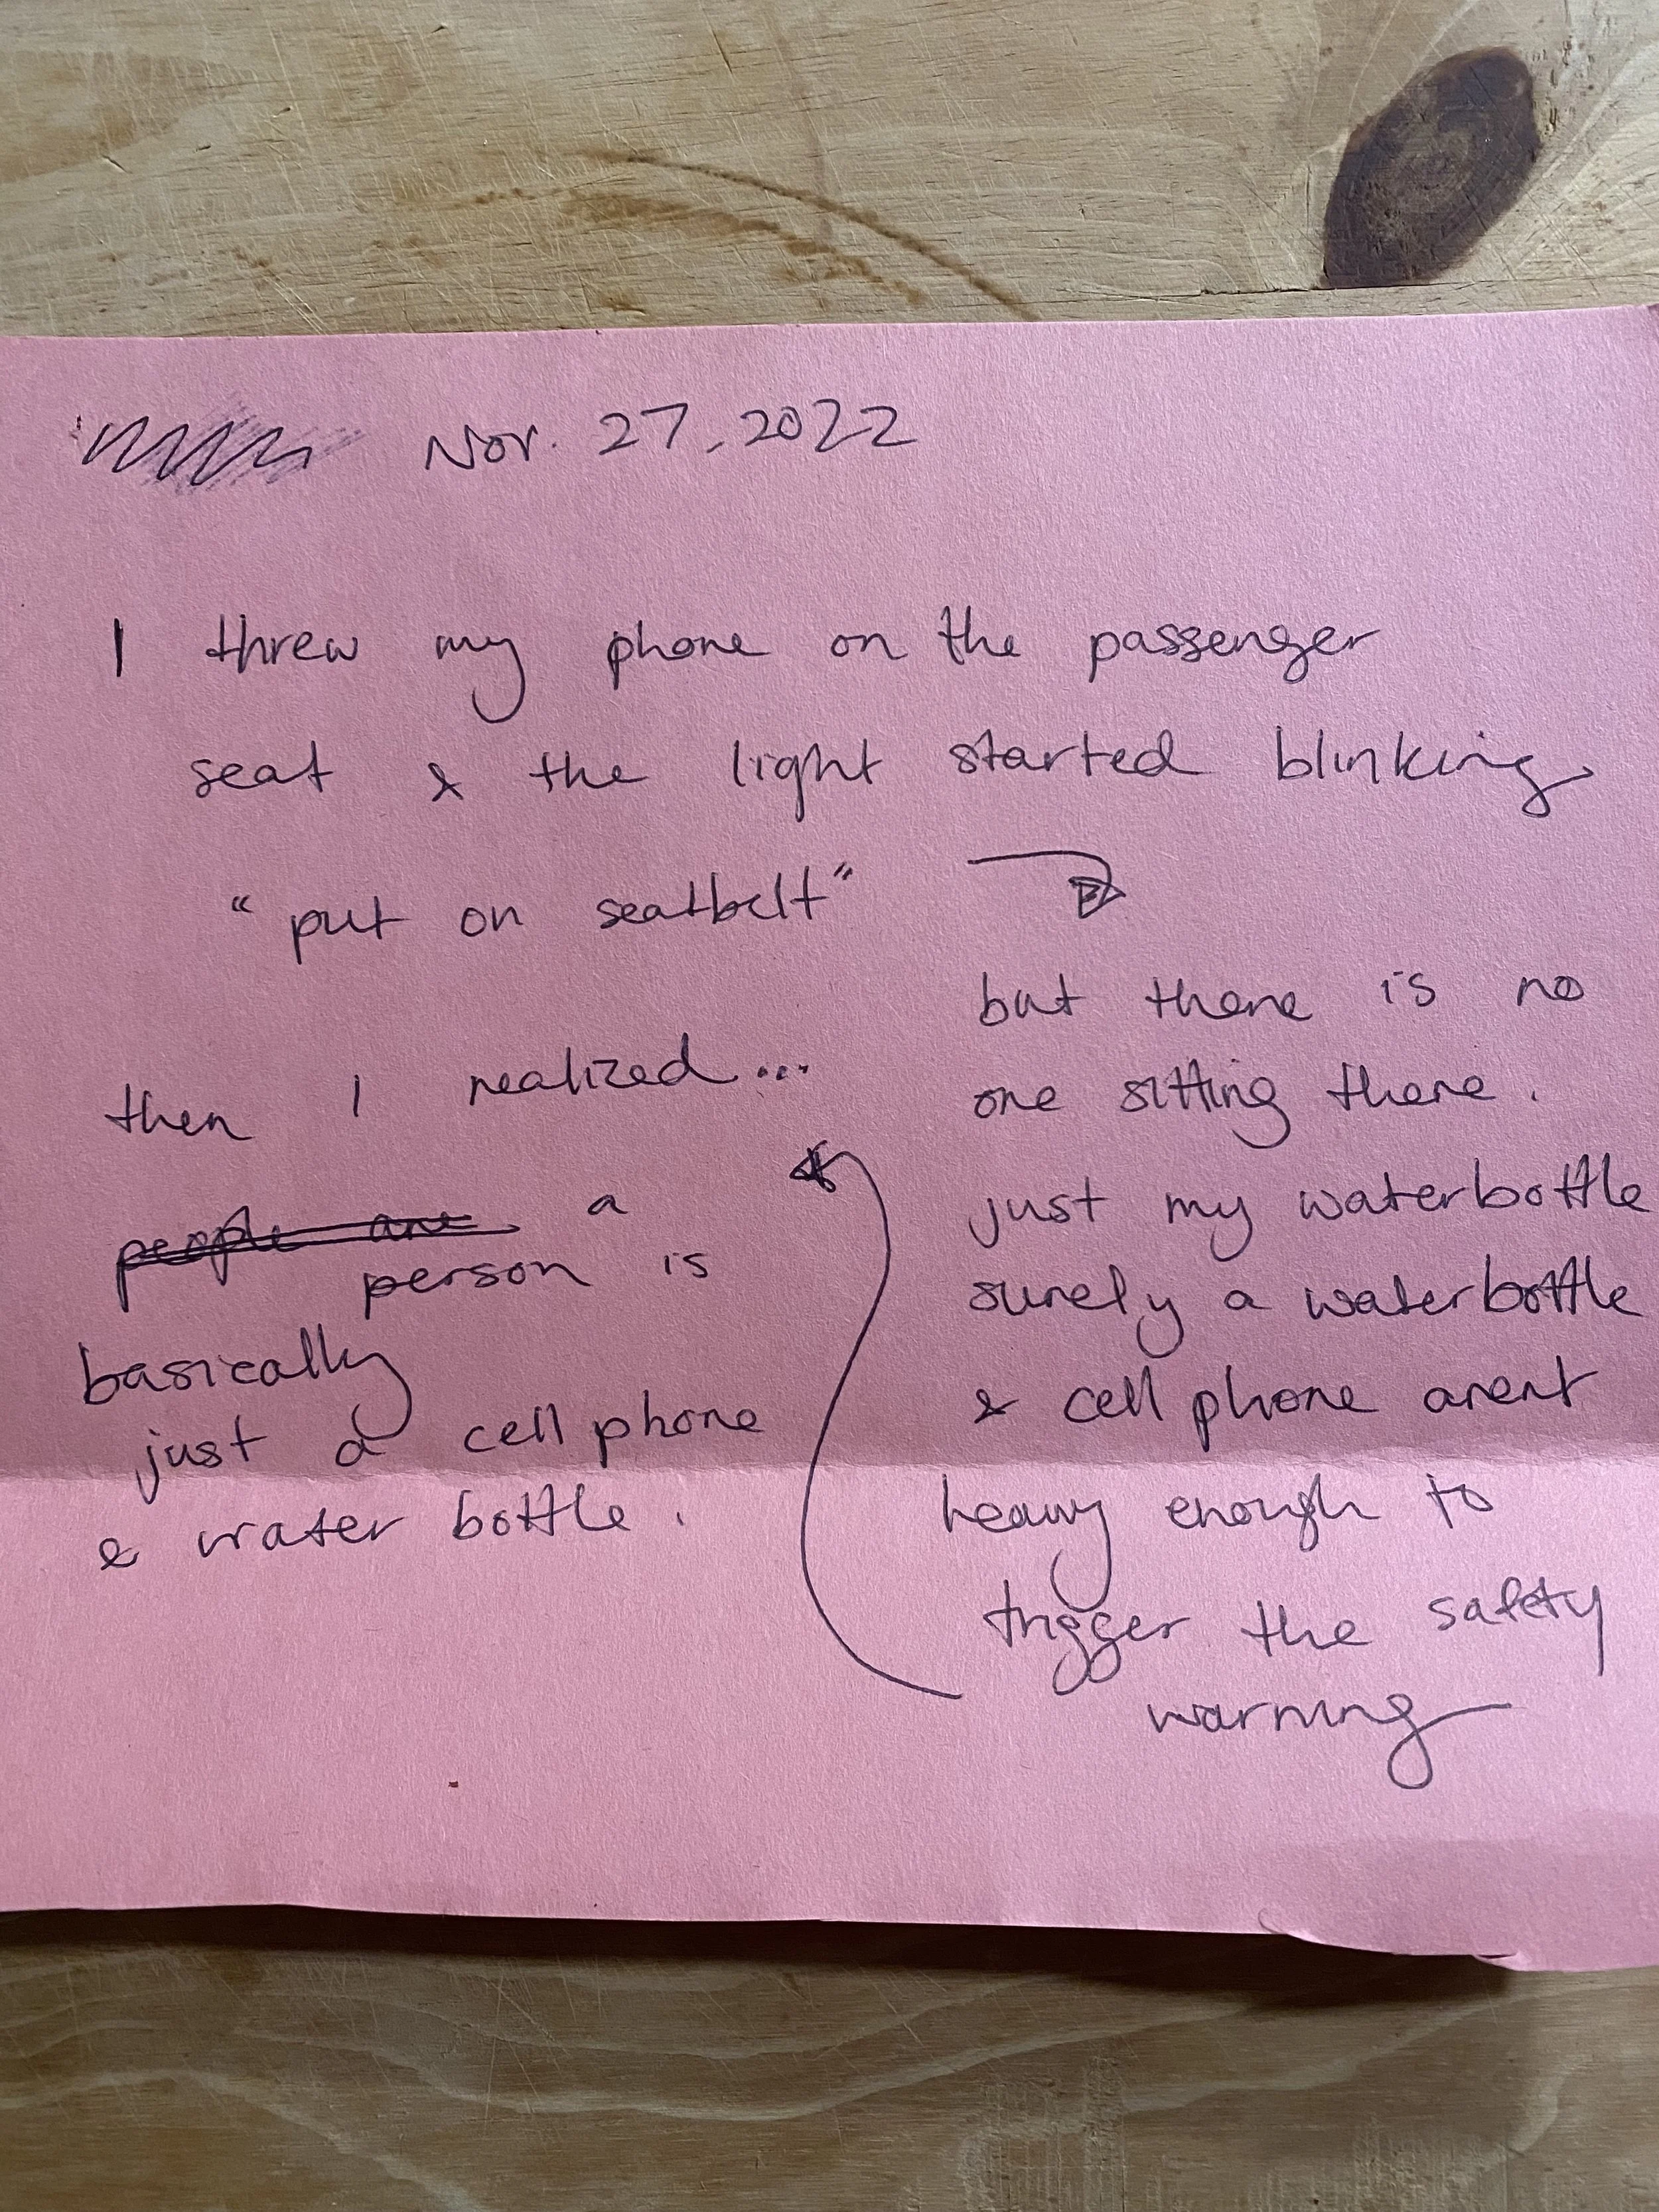 Nov. 27, 2022
I threw my phone on the passenger
seat & the light started blinking
"put on seatbelt"
but there is no
one sitting there.
just my waterbottle
surely a waterbottle
& cell phone arent
heavy enough to
trigger the safety
warning
then I realized...
people are a
person is
basically
just a cell phone
& water bottle.